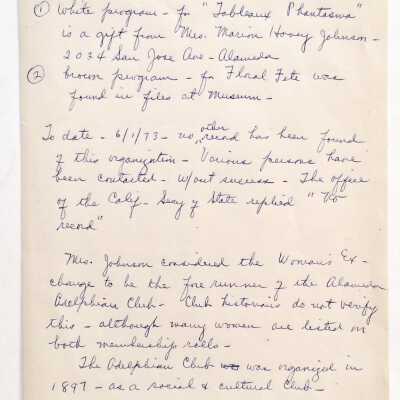 ① White program - for "Tableaux Phantasma"
is a gift from Mrs. Marion Hovey Johnson -
2034 San Jose Ave - Alameda
② brown program - for Floral Fete was
found in files at Museum -
To date - 6/1/73 - no other record has been found
of this organization - Various persons have
been contacted - w/out success - The office
of the Calif - Secy of State replied "No
record"
Mrs. Johnson considered the Woman's Ex-
change to be the fore runner of the Alameda
Adelphian Club - Club historians do not verify
this - although many women are listed on
both membership rolls -
The Adelphian Club was was organized in
1897 - as a social & cultural Club -